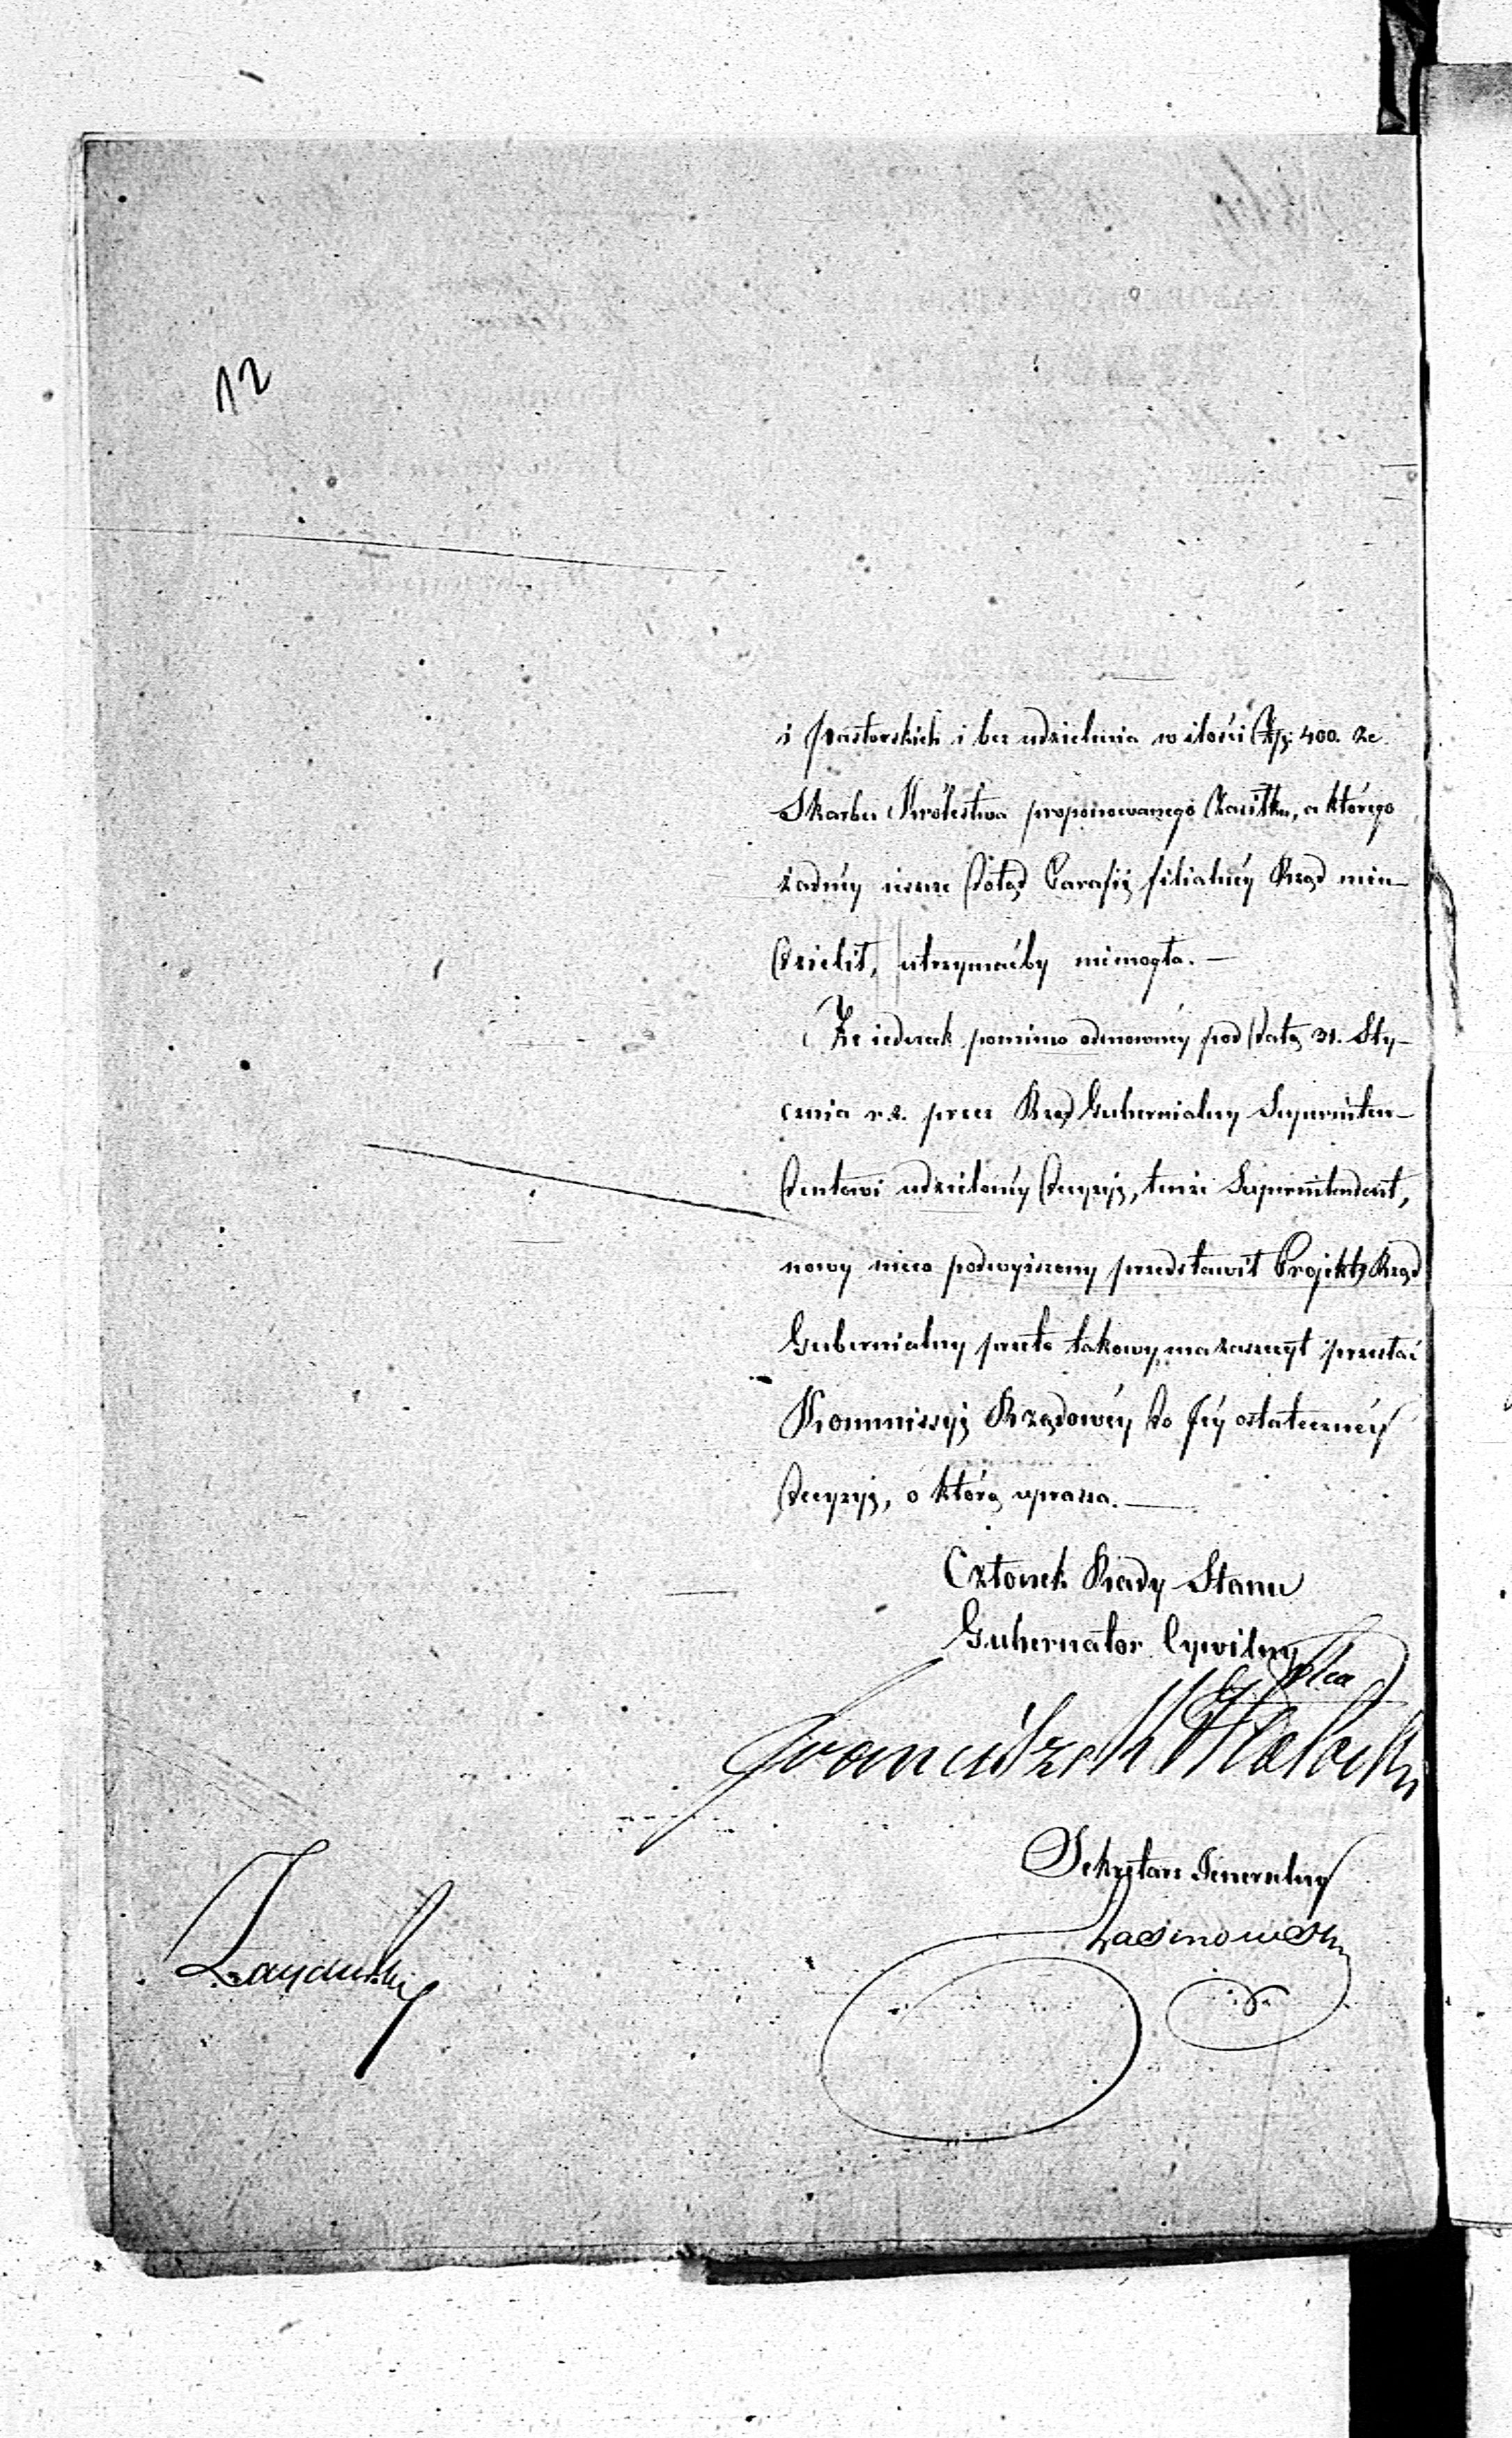 12
i Pastorskich i bez udzielenia w ilości Złp: 400. ze
Skarbu Królestwa proponowanego Zasiłku, a którego
żadnéy ieszcze dotąd Parafij filialnéy Rząd nieu-
dzielił, utrzymaćby niemogła. —
Że iednak pomimo odmownéy pod datą 31. Sty-
cznia r.z. przez Rząd Gubernialny Superinten-
dentowi udzielonéy decyzyi, tenże Superintendent,
nowy nieco podwyższony przedstawił Projekt, Rząd
Gubernialny przeto takowy ma zaszczyt przesłać
Kommissyi Rządowéy do Jéy ostatecznéy
decyzyi, o którą uprasza. —
Członek Rady Stanu
Gubernator Cywilny
Franciszek Potocki
Sekretarz Generalny